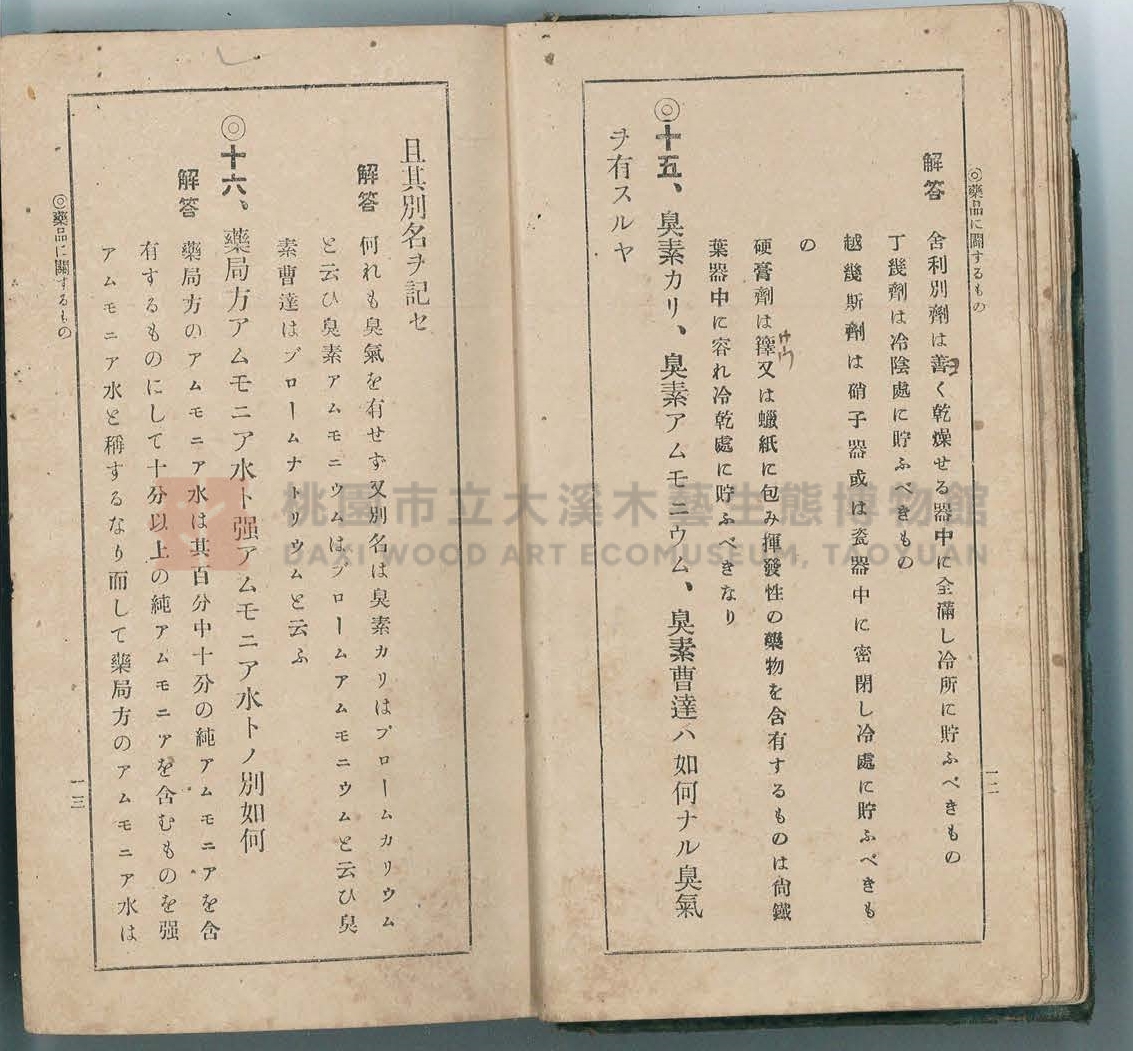 ◎藥品に關するもの
一二
解答
舍利別劑は善く乾燥せる器中に全滿し冷所に貯ふべきもの
ヨ
丁幾劑は冷陰處に貯ふべきもの
越幾斯劑は硝子器或は瓷器中に密閉し冷處に貯ふべきも
の
硬膏劑は籜又は蠟紙に包み揮發性の藥物を含有するものは尙鐵
葉器中に容れ冷乾處に貯ふべきなり
◎十五、臭素カリ、臭素アムモニウム、臭素曹達ハ如何ナル臭氣
ヲ有スルヤ
且其別名ヲ記セ
解答
何れも臭氣を有せず又別名は臭素カリはブロームカリウム
と云ひ臭素アムモニウムはブロームアムモニウムと云ひ臭
素曹達はブロームナトリウムと云ふ
◎十六、藥局方アムモニア水ト强アムモニア水トノ別如何
解答
藥局方のアムモニア水は其百分中十分の純アムモニアを含
有するものにして十分以上の純アムモニアを含むものを强
アムモニア水と稱するなり而して藥局方のアムモニア水は
◎藥品に關するもの
一三
桃園市立大溪木藝生態博物館
DAXI WOOD ART ECOMUSEUM, TAOYUAN